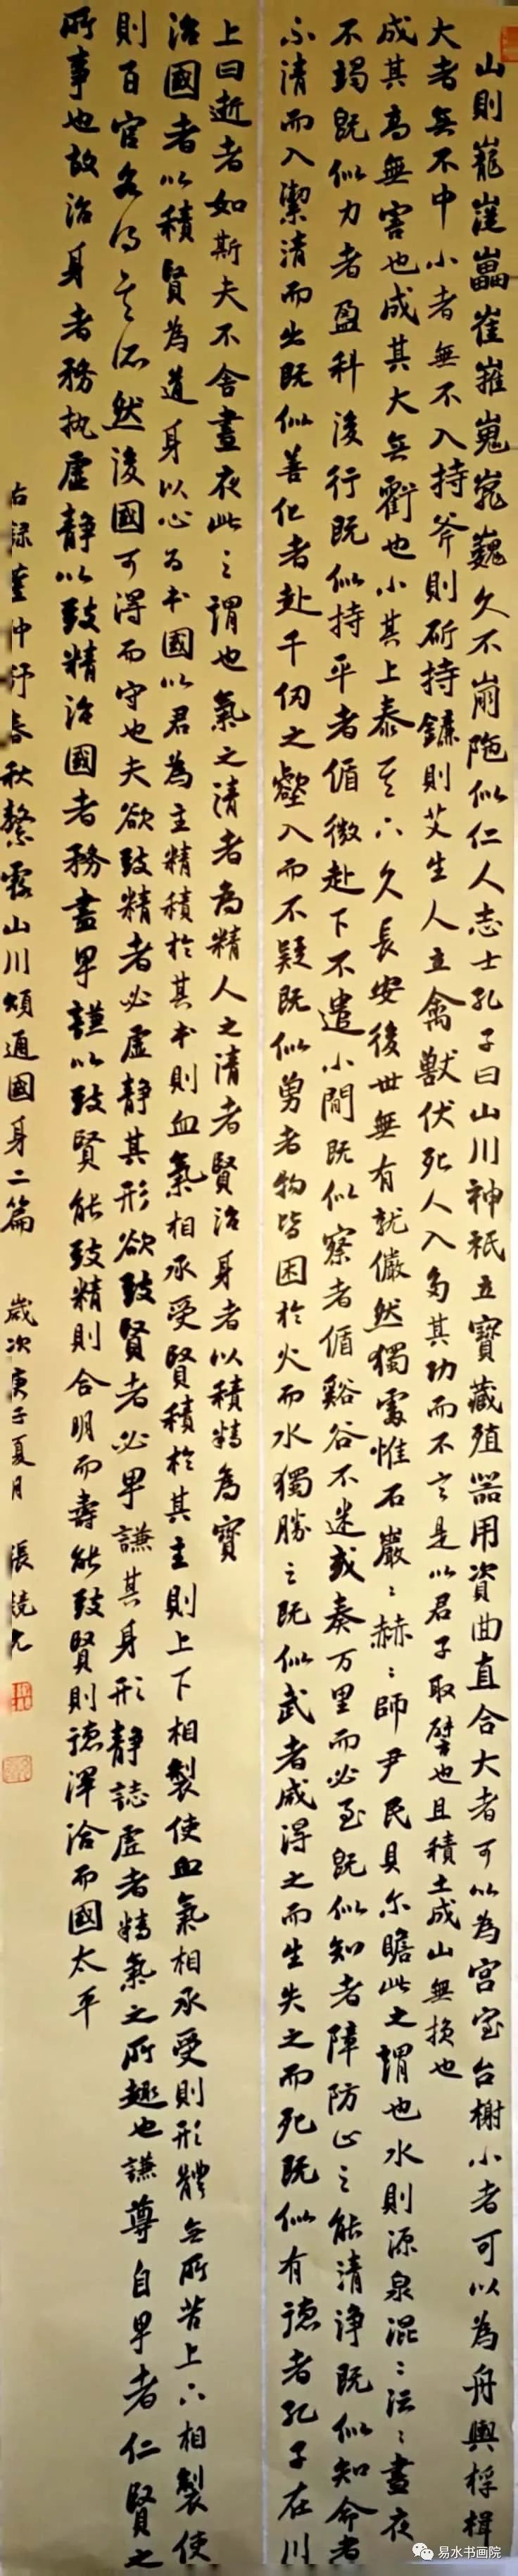 山則巃嵸崔嶊嵬嶵巍久不崩陁似仁人志士孔子曰山川神祇立寶藏殖器用資曲直合大者可以為宮室台榭小者可以為舟輿桴楫
大者無不中小者無不入持斧則斫持鐮則艾生人立禽獸伏死人入多其功而不言是以君子取譬也且積土成山無損也
成其高無害也成其大無虧也小其上泰其下久長安後世無有就儼然獨處惟石巖〻赫〻師尹民具尔瞻此之謂也水則源泉混〻沄〻晝夜
不竭既似力者盈科後行既似持平者循微赴下不遺小間既似察者循谿谷不迷或奏万里而必至既似知者障防止之能清淨既似知命者
不清而入潔清而出既似善化者赴千仞之壑入而不疑既似勇者物皆困於火而水獨勝之既似武者咸得之而生失之而死既似有德者孔子在川
上曰逝者如斯夫不舍晝夜此之謂也氣之清者為精人之清者賢治身者以積精為寶
治國者以積賢為道身以心為本國以君為主精積於其本則血氣相承受賢積於其主則上下相製使血氣相承受則形體無所苦上下相製使
則百官各得其所然後國可得而守也夫欲致精者必虛靜其形欲致賢者必卑謙其身形靜誌虛者精氣之所趣也謙尊自卑者仁賢之
所事也故治身者務执虛靜以致精治國者務盡卑謙以致賢能致精則合明而壽能致賢則德澤洽而國太平
右録董仲舒春秋繁露山川頌通國身二篇 歲次庚子夏月 張
易水书画院